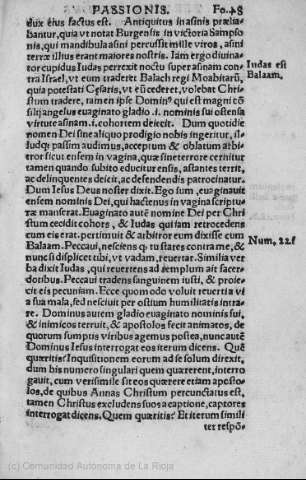 PASSIONIS. Fo.48
dux eius factus est. Antiquitus in asinis prælia-
bantur, quia vt notat Burgensis in victoria Sampso
nis, qui mandibula asini percussit mille viros, asini
terræ illius erant maiores nostris. Iam ergo diuina-
tor cupidus Iudas perrexit nocturno tempore con
tra Israel, vt eum traderet Balach regi Moabitarũ,
quia potestati Cęsaris, vt eũ cederet, volebat Chri-
stum tradere, tamen ipse Dominꝰ qui est magni cõ
silij angelus euaginato gladio .i. nominis sui ostensa
virtute asinam .i. cohortem deiecit. Dum quotidie
nomen Dei sine aliquo prodigio nobis ingeritur, il-
ludq; passim audimus, acceptum & oblatum at bi-
tror sicut ensem in vagina, quæ sine terrore cernitur
tamen quando subito educitur ensis, astantes territ,
ac delinquentes deicit, ac defendendis patrocinatur.
Dum Iesus Deus noster dixit. Ego sum, euaginauit
ensem nominis Dei, qui hactenus in vagina scriptu-
ræ manserat. Euaginato autẽ nomine Dei per Chri
stum cecidit cohors, & Iudas quiam retrocedens
cum eis erat. pertimuit & arbitror eum dixisse cum
Balaam. Peccaui, nesciens q; tu stares contra me, &
nunc si displicet tibi, vt vadam, reuertar. Similia ver
ba dixit Iudas, qui reuertens ad templum ait sacer-
dotibus. Peccaui tradens sanguinem iusti, & proie-
cit eis pecuniam. Ecce quomodo voluit reuerti a vi
a sua mala, sed nesciuit per ostium humilitatis intra-
re. Dominus autem gladio euaginato nominis sui,
& inimicos terruit, & apostolos fecit animatos, de
quorum sumptis viribus agemus postea, nunc autẽ
Dominus Iesus interrogat eos iterum dicens. Quẽ
quæritis? Inquisitionem eorum ad se solum direxit,
dum bis numero singulari quem quærerent, interro
gauit, cum verisimile sit eos quærere etiam aposto-
los, de quibus Annas Christum percunctatus est,
tamen Christus excludens suos a captione, captores
interrogat dicens. Quem quæritis? Et iterum simili
ter respõ⸗
Iudas est
Balaam.
Num. 22. f
(c) Comunidad Autónoma de La Rioja